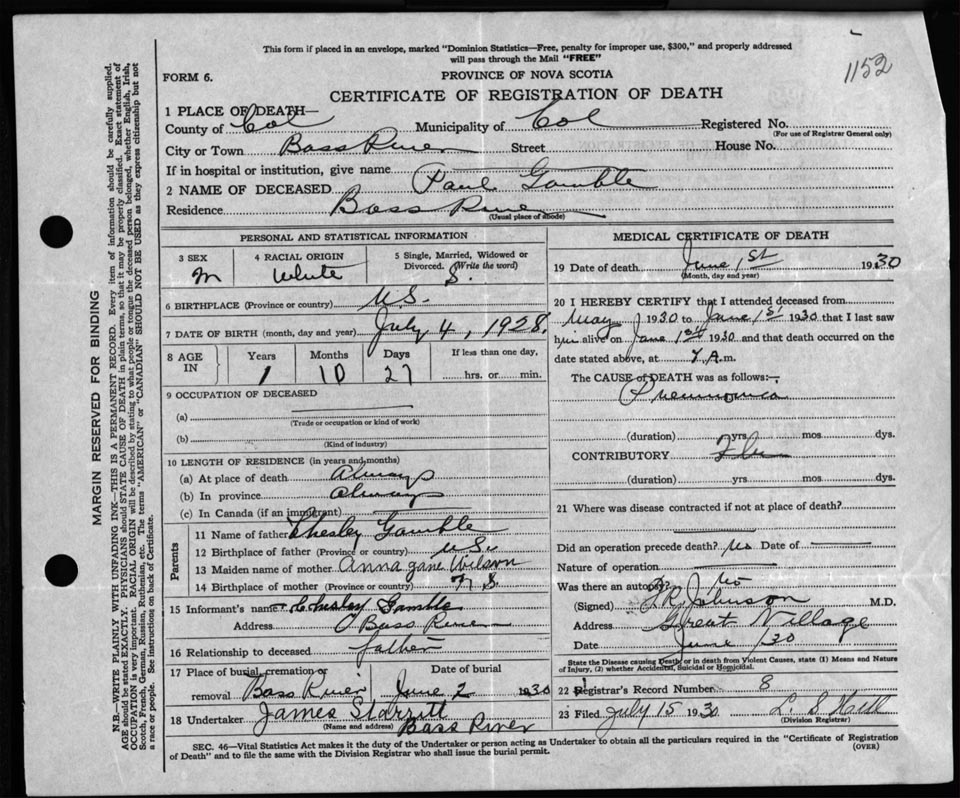 This form if placed in an envelope, marked "Dominion Statistics—Free, penalty for improper use, $300," and properly addressed
will pass through the Mail "FREE"
1152
FORM 6.
PROVINCE OF NOVA SCOTIA
CERTIFICATE OF REGISTRATION OF DEATH
1 PLACE OF DEATH—
County of Col Municipality of Col Registered No.
(For use of Registrar General only)
City or Town Bass River Street House No.
If in hospital or institution, give name
2 NAME OF DECEASED Paul Gamble
Residence Bass River
(Usual place of abode)
PERSONAL AND STATISTICAL INFORMATION
3 SEX 4 RACIAL ORIGIN 5 Single, Married, Widowed or
Divorced. (Write the word)
M White S.
6 BIRTHPLACE (Province or country) N.S.
7 DATE OF BIRTH (month, day and year) July 4, 1928
8 AGE IN Years Months Days If less than one day,
1 10 27 hrs. or min.
9 OCCUPATION OF DECEASED
(a)
(Trade or occupation or kind of work)
(b)
(Kind of industry)
10 LENGTH OF RESIDENCE (in years and months)
(a) At place of death Always
(b) In province Always
(c) In Canada (if an immigrant)
Parents
11 Name of father Chesley Gamble
12 Birthplace of father (Province or country) N.S.
13 Maiden name of mother Anna Jane Wilson
14 Birthplace of mother (Province or country) N S
15 Informant's name Chesley Gamble
Address Bass River
16 Relationship to deceased father
17 Place of burial, cremation or Date of burial
removal Bass River June 2 1930
18 Undertaker James Starritt
(Name and address) Bass River
MEDICAL CERTIFICATE OF DEATH
19 Date of death June 1st 1930
(Month, day and year)
20 I HEREBY CERTIFY that I attended deceased from
May 1930 to June 1st 1930 that I last saw
him alive on June 1st 1930 and that death occurred on the
date stated above, at 7 A.m.
The CAUSE of DEATH was as follows:—
Pneumonia
(duration) yrs. mos. dys.
CONTRIBUTORY Flu
(duration) yrs. mos. dys.
21 Where was disease contracted if not at place of death?
Did an operation precede death? No Date of
Nature of operation
Was there an autopsy? No
(Signed) Johnson M.D.
Address Great Village
Date June /30
State the Disease causing Death, or in death from Violent Causes, state (1) Means and Nature
of Injury, (2) whether Accidental, Suicidal or Homicidal.
22 Registrar's Record Number 8
23 Filed July 15 1930 L. S. Hill
(Division Registrar)
SEC. 46—Vital Statistics Act makes it the duty of the Undertaker or person acting as Undertaker to obtain all the particulars required in the "Certificate of Registration
of Death" and to file the same with the Division Registrar who shall issue the burial permit.
(OVER)
MARGIN RESERVED FOR BINDING
N.B.—WRITE PLAINLY WITH UNFADING INK—THIS IS A PERMANENT RECORD. Every item of information should be carefully supplied.
AGE should be stated EXACTLY. PHYSICIANS should STATE CAUSE OF DEATH in plain terms, so that it may be properly classified. Exact statement of
OCCUPATION is very important. RACIAL ORIGIN will be described by stating to what people or tongue the deceased person belonged, whether English, Irish,
Scotch, French, German, Russian, Ruthenian, etc. The terms "AMERICAN" or "CANADIAN" SHOULD NOT BE USED as they express citizenship but not
a race or people. See instructions on back of Certificate.